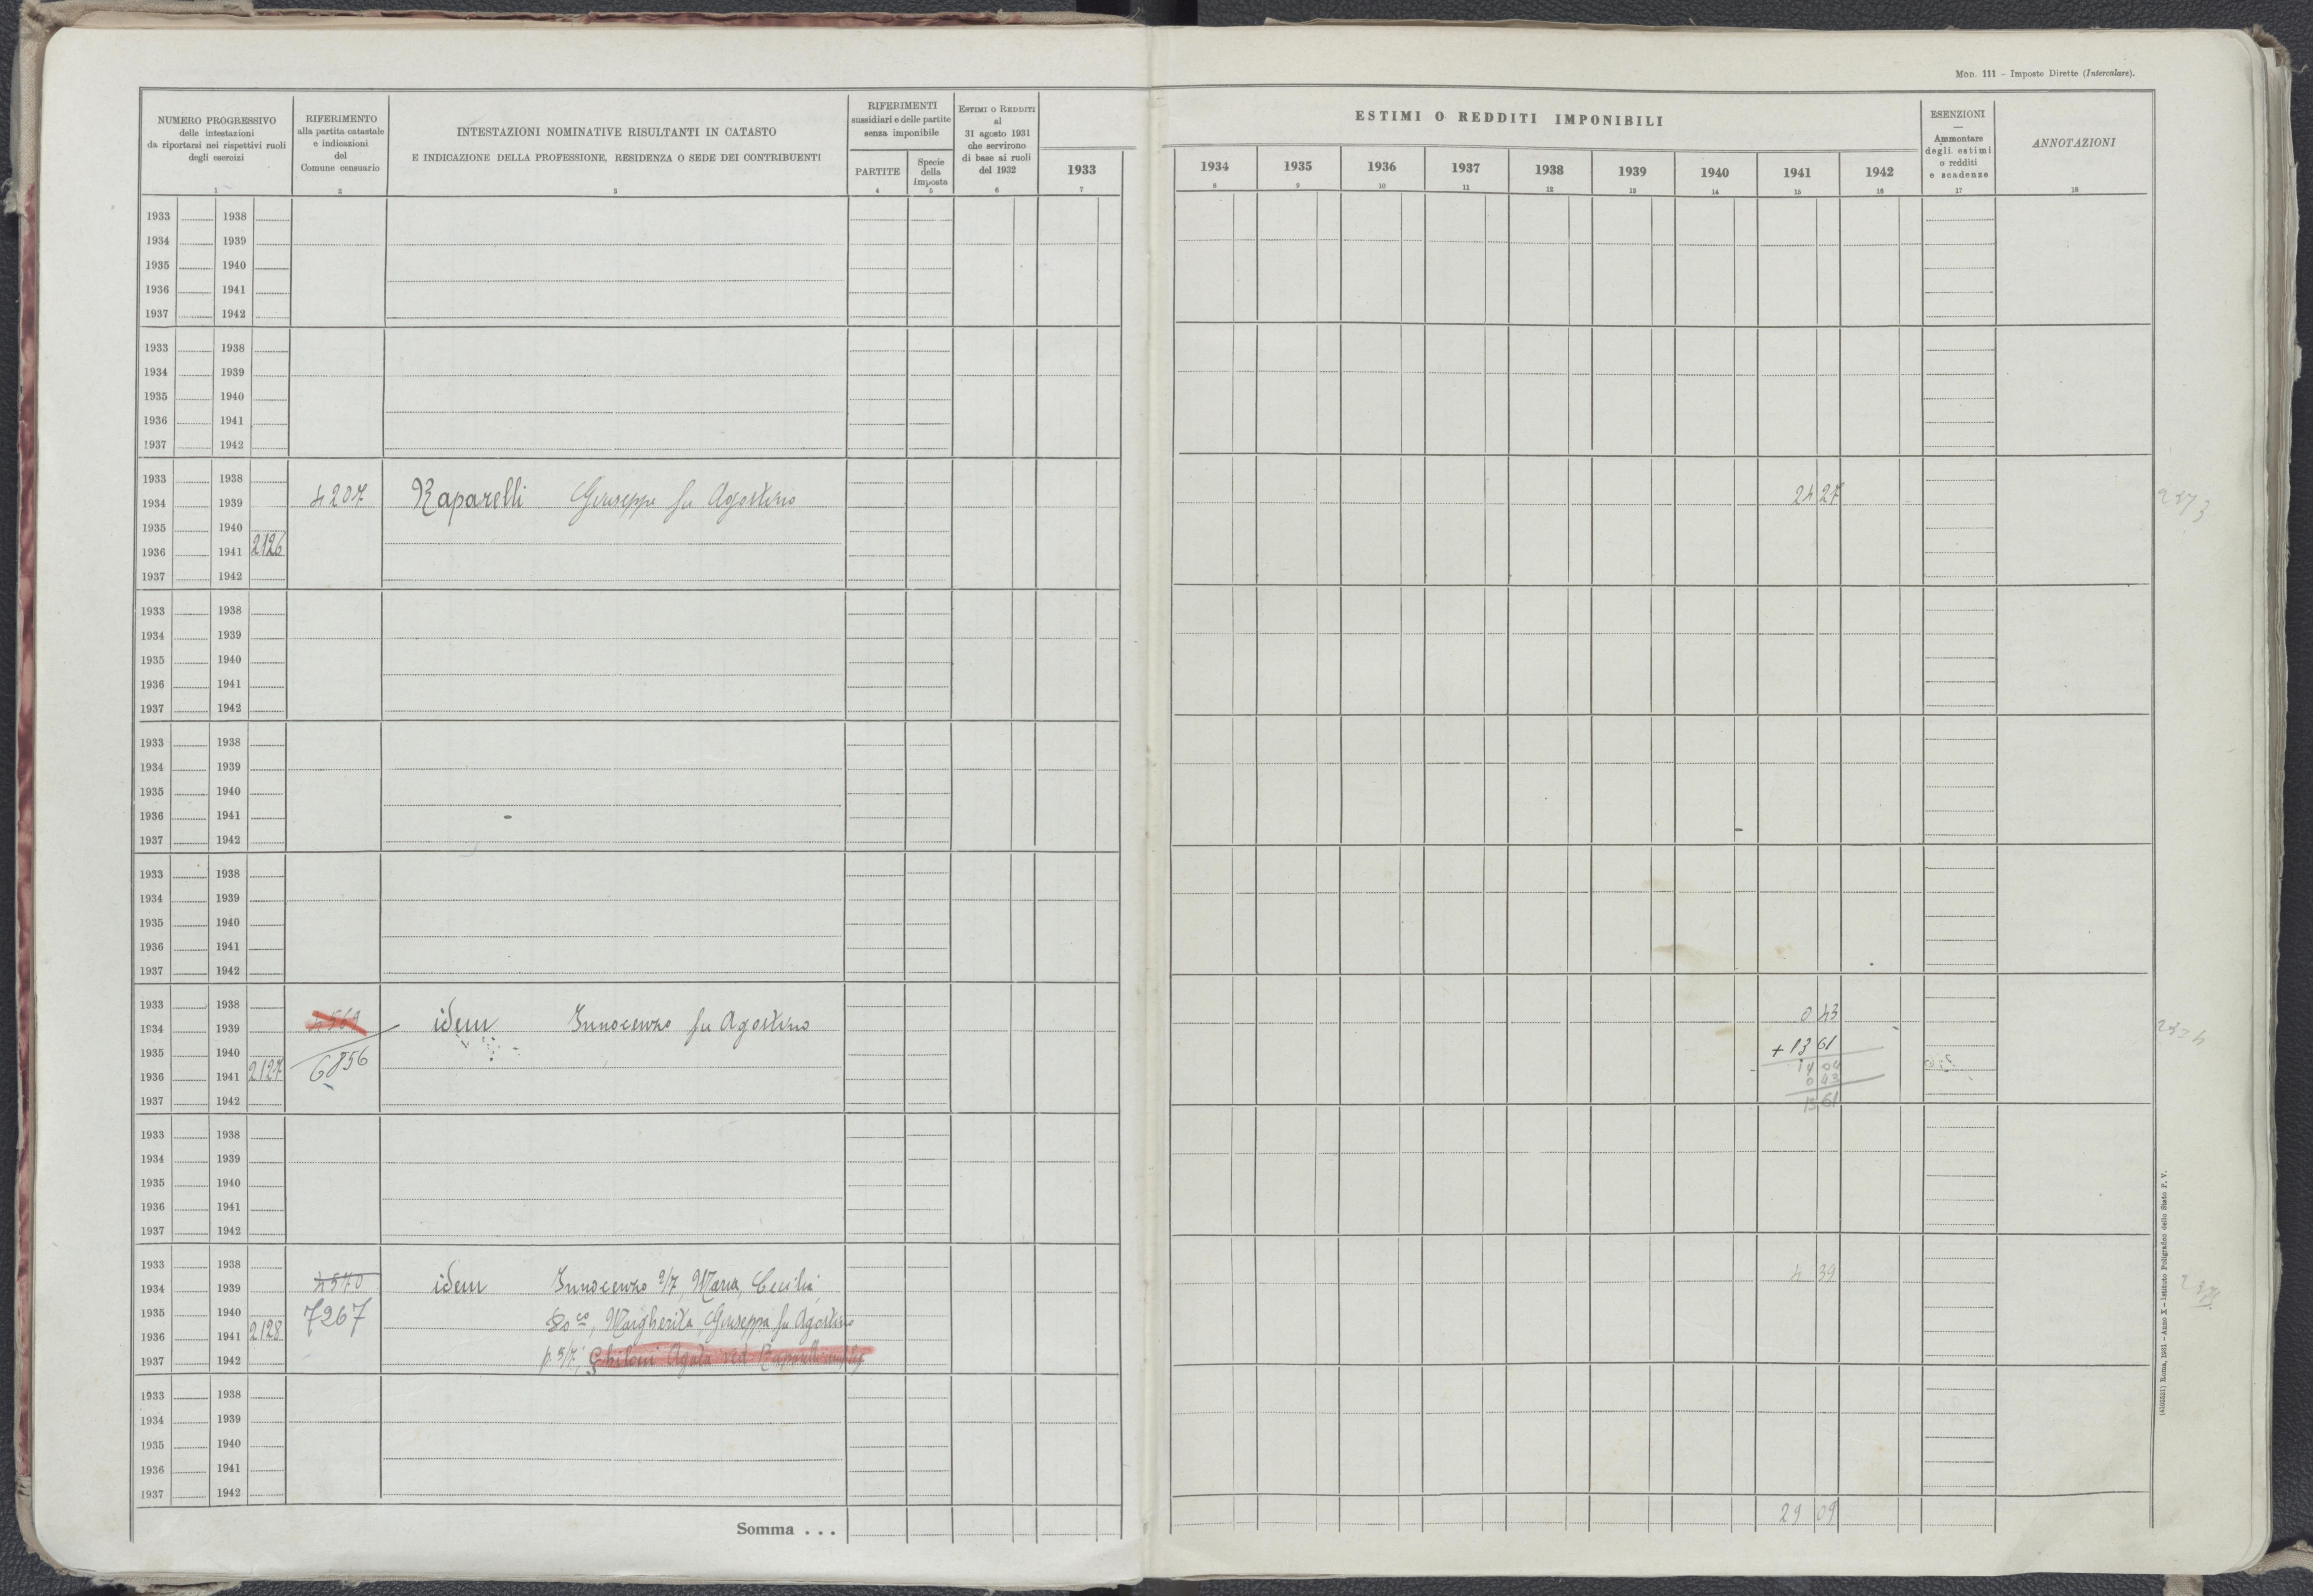 MOD. 111 – Imposte Dirette (Intercalare).
NUMERO PROGRESSIVO
delle intestazioni
da riportarsi nei rispettivi ruoli
degli esercizi
1
RIFERIMENTO
alla partita catastale
e indicazioni
del
Comune censuario
2
INTESTAZIONI NOMINATIVE RISULTANTI IN CATASTO
E INDICAZIONE DELLA PROFESSIONE, RESIDENZA O SEDE DEI CONTRIBUENTI
3
RIFERIMENTI
sussidiari e delle partite
senza imponibile
PARTITE
4
Specie
della
imposta
5
ESTIMI O REDDITI
al
31 agosto 1931
che servirono
di base ai ruoli
del 1932
6
1933
7
ESTIMI O REDDITI IMPONIBILI
1934 1935 1936 1937 1938 1939 1940 1941 1942
8 9 10 11 12 13 14 15 16
ESENZIONI
—
Ammontare
degli estimi
o redditi
e scadenze
17
ANNOTAZIONI
18
1933 1938
1934 1939
1935 1940
1936 1941
1937 1942
1933 1938
1934 1939
1935 1940
1936 1941
1937 1942
1933 1938
1934 1939 4207 Raparelli Giuseppe fu Agostino 24 27
1935 1940
1936 1941 2126
1937 1942
1933 1938
1934 1939
1935 1940
1936 1941
1937 1942
1933 1938
1934 1939
1935 1940
1936 1941
1937 1942
1933 1938
1934 1939
1935 1940
1936 1941
1937 1942
1933 1938
1934 1939 4569 idem Innocenzo fu Agostino 0 43
1935 1940 6856 + 13 61
1936 1941 2127 14 04
0 43
1937 1942 13 61
1933 1938
1934 1939
1935 1940
1936 1941
1937 1942
1933 1938
1934 1939 4570 idem Innocenzo 2/7, Maria, Cecilia 4 39
1935 1940 7267 Margherita, Giuseppa fu Agostino
1936 1941 2128
1937 1942 p. 5/7, Ghiloni Agata ved Raparelli
1933 1938
1934 1939
1935 1940
1936 1941
1937 1942
Somma . . . 29 09
(4103531) Roma, 1931 - Anno X - Istituto Poligrafico dello Stato P. V.